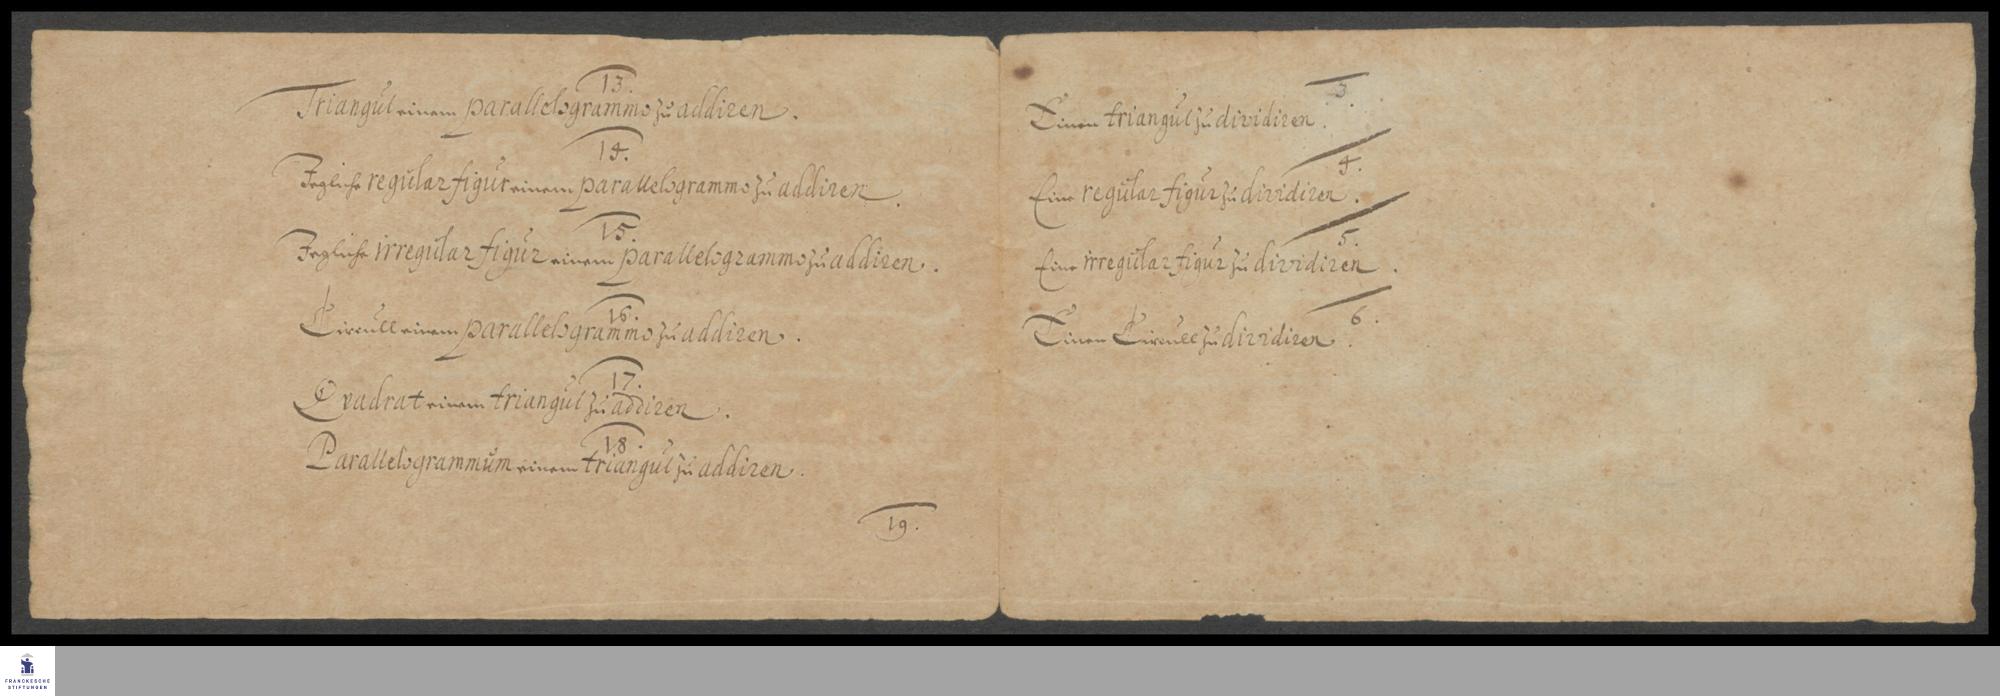 13.
Triangul einem parallelogrammo zu addiren.
14.
Jegliche regular figur einem parallelogrammo zu addiren.
15.
Jegliche irregular figur einem parallelogrammo zu addiren.
16.
Circull einem parallelogrammo zu addiren.
17.
Qvadrat einem triangul zu addiren.
18.
Parallelogrammum einem triangul zu addiren.
19.
3.
Einen triangul zu dividiren.
4.
Eine regular figur zu dividiren.
5.
Eine irregular figur zu dividiren.
6.
Einen Circull zu dividiren.
FRANCKESCHE
STIFTUNGEN